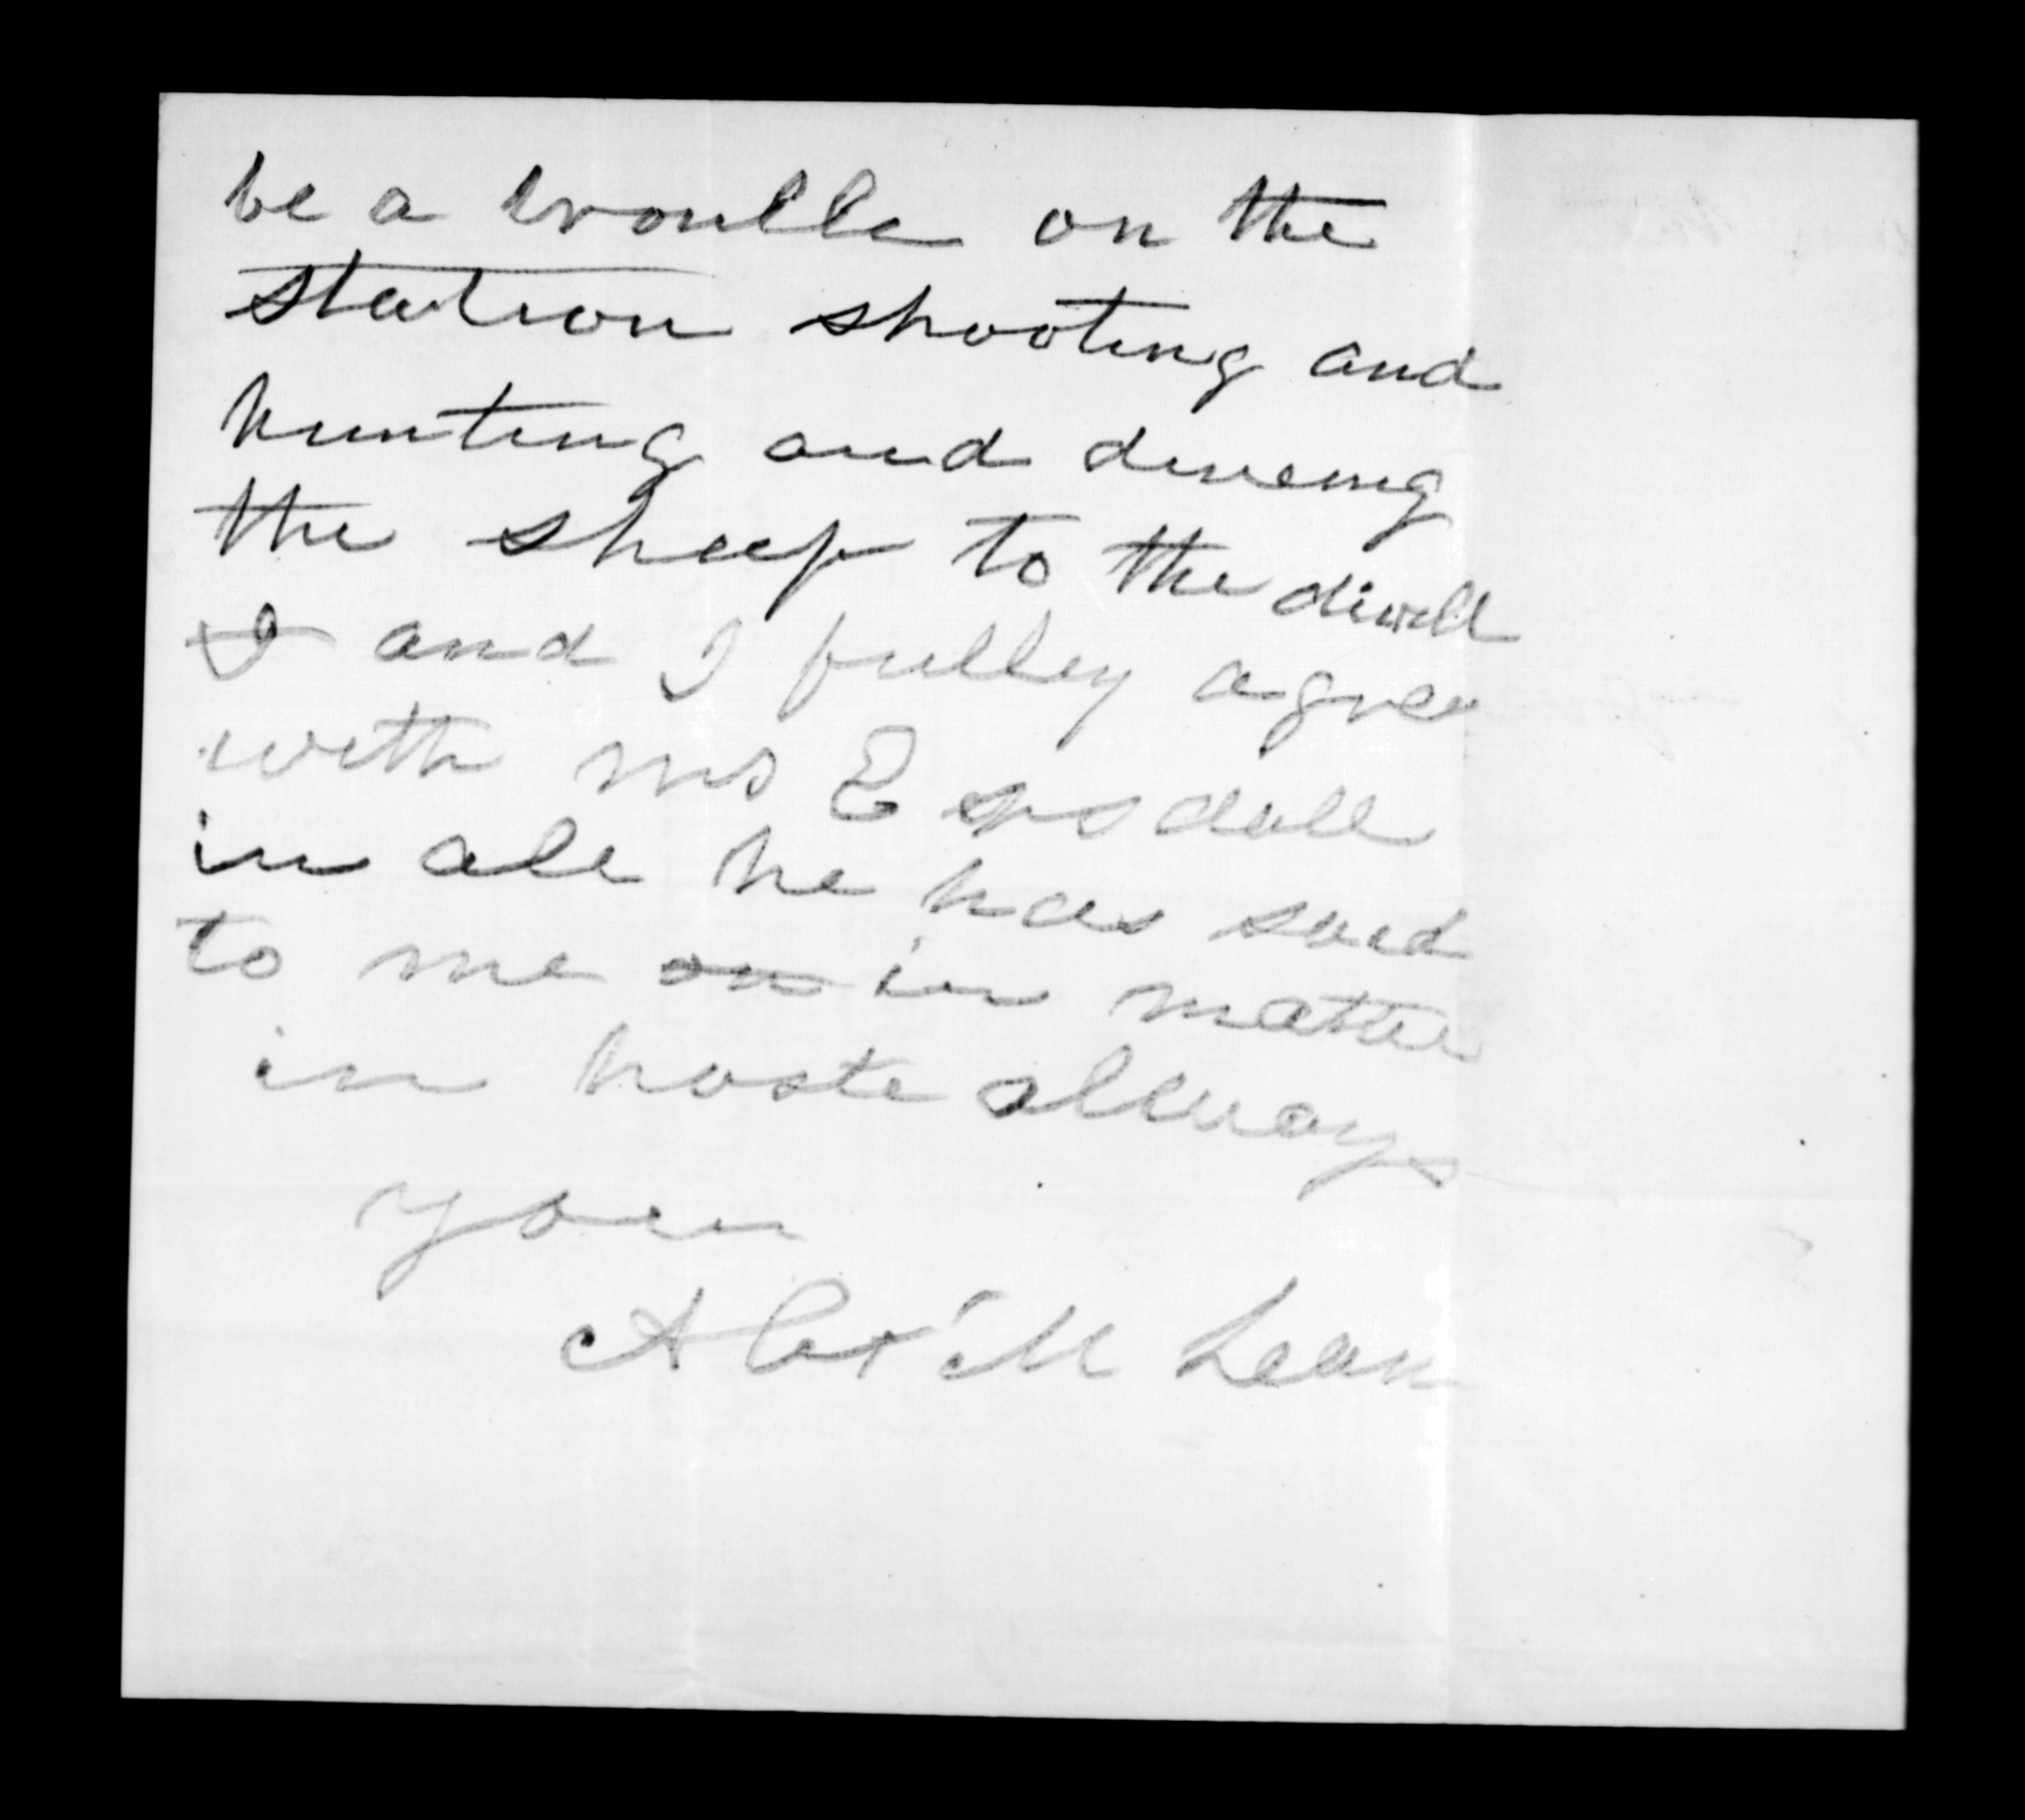 be a troulle on the
station shooting and
hunting and driveing
the sheep to the divell
I and I fulley agree
with mr
in all he has said
to me on in matter
in haste allways
your
Alex McLean